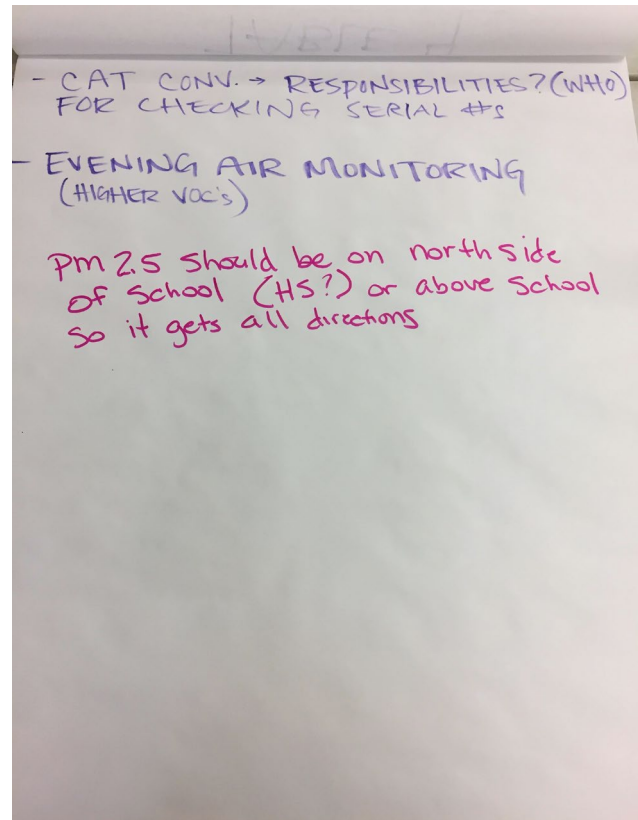 - CAT CONV. → RESPONSIBILITIES? (WHO)
FOR CHECKING SERIAL #s
- EVENING AIR MONITORING
(HIGHER VOC's)
Pm 2.5 Should be on north side
of School (HS?) or above School
So it gets all directions